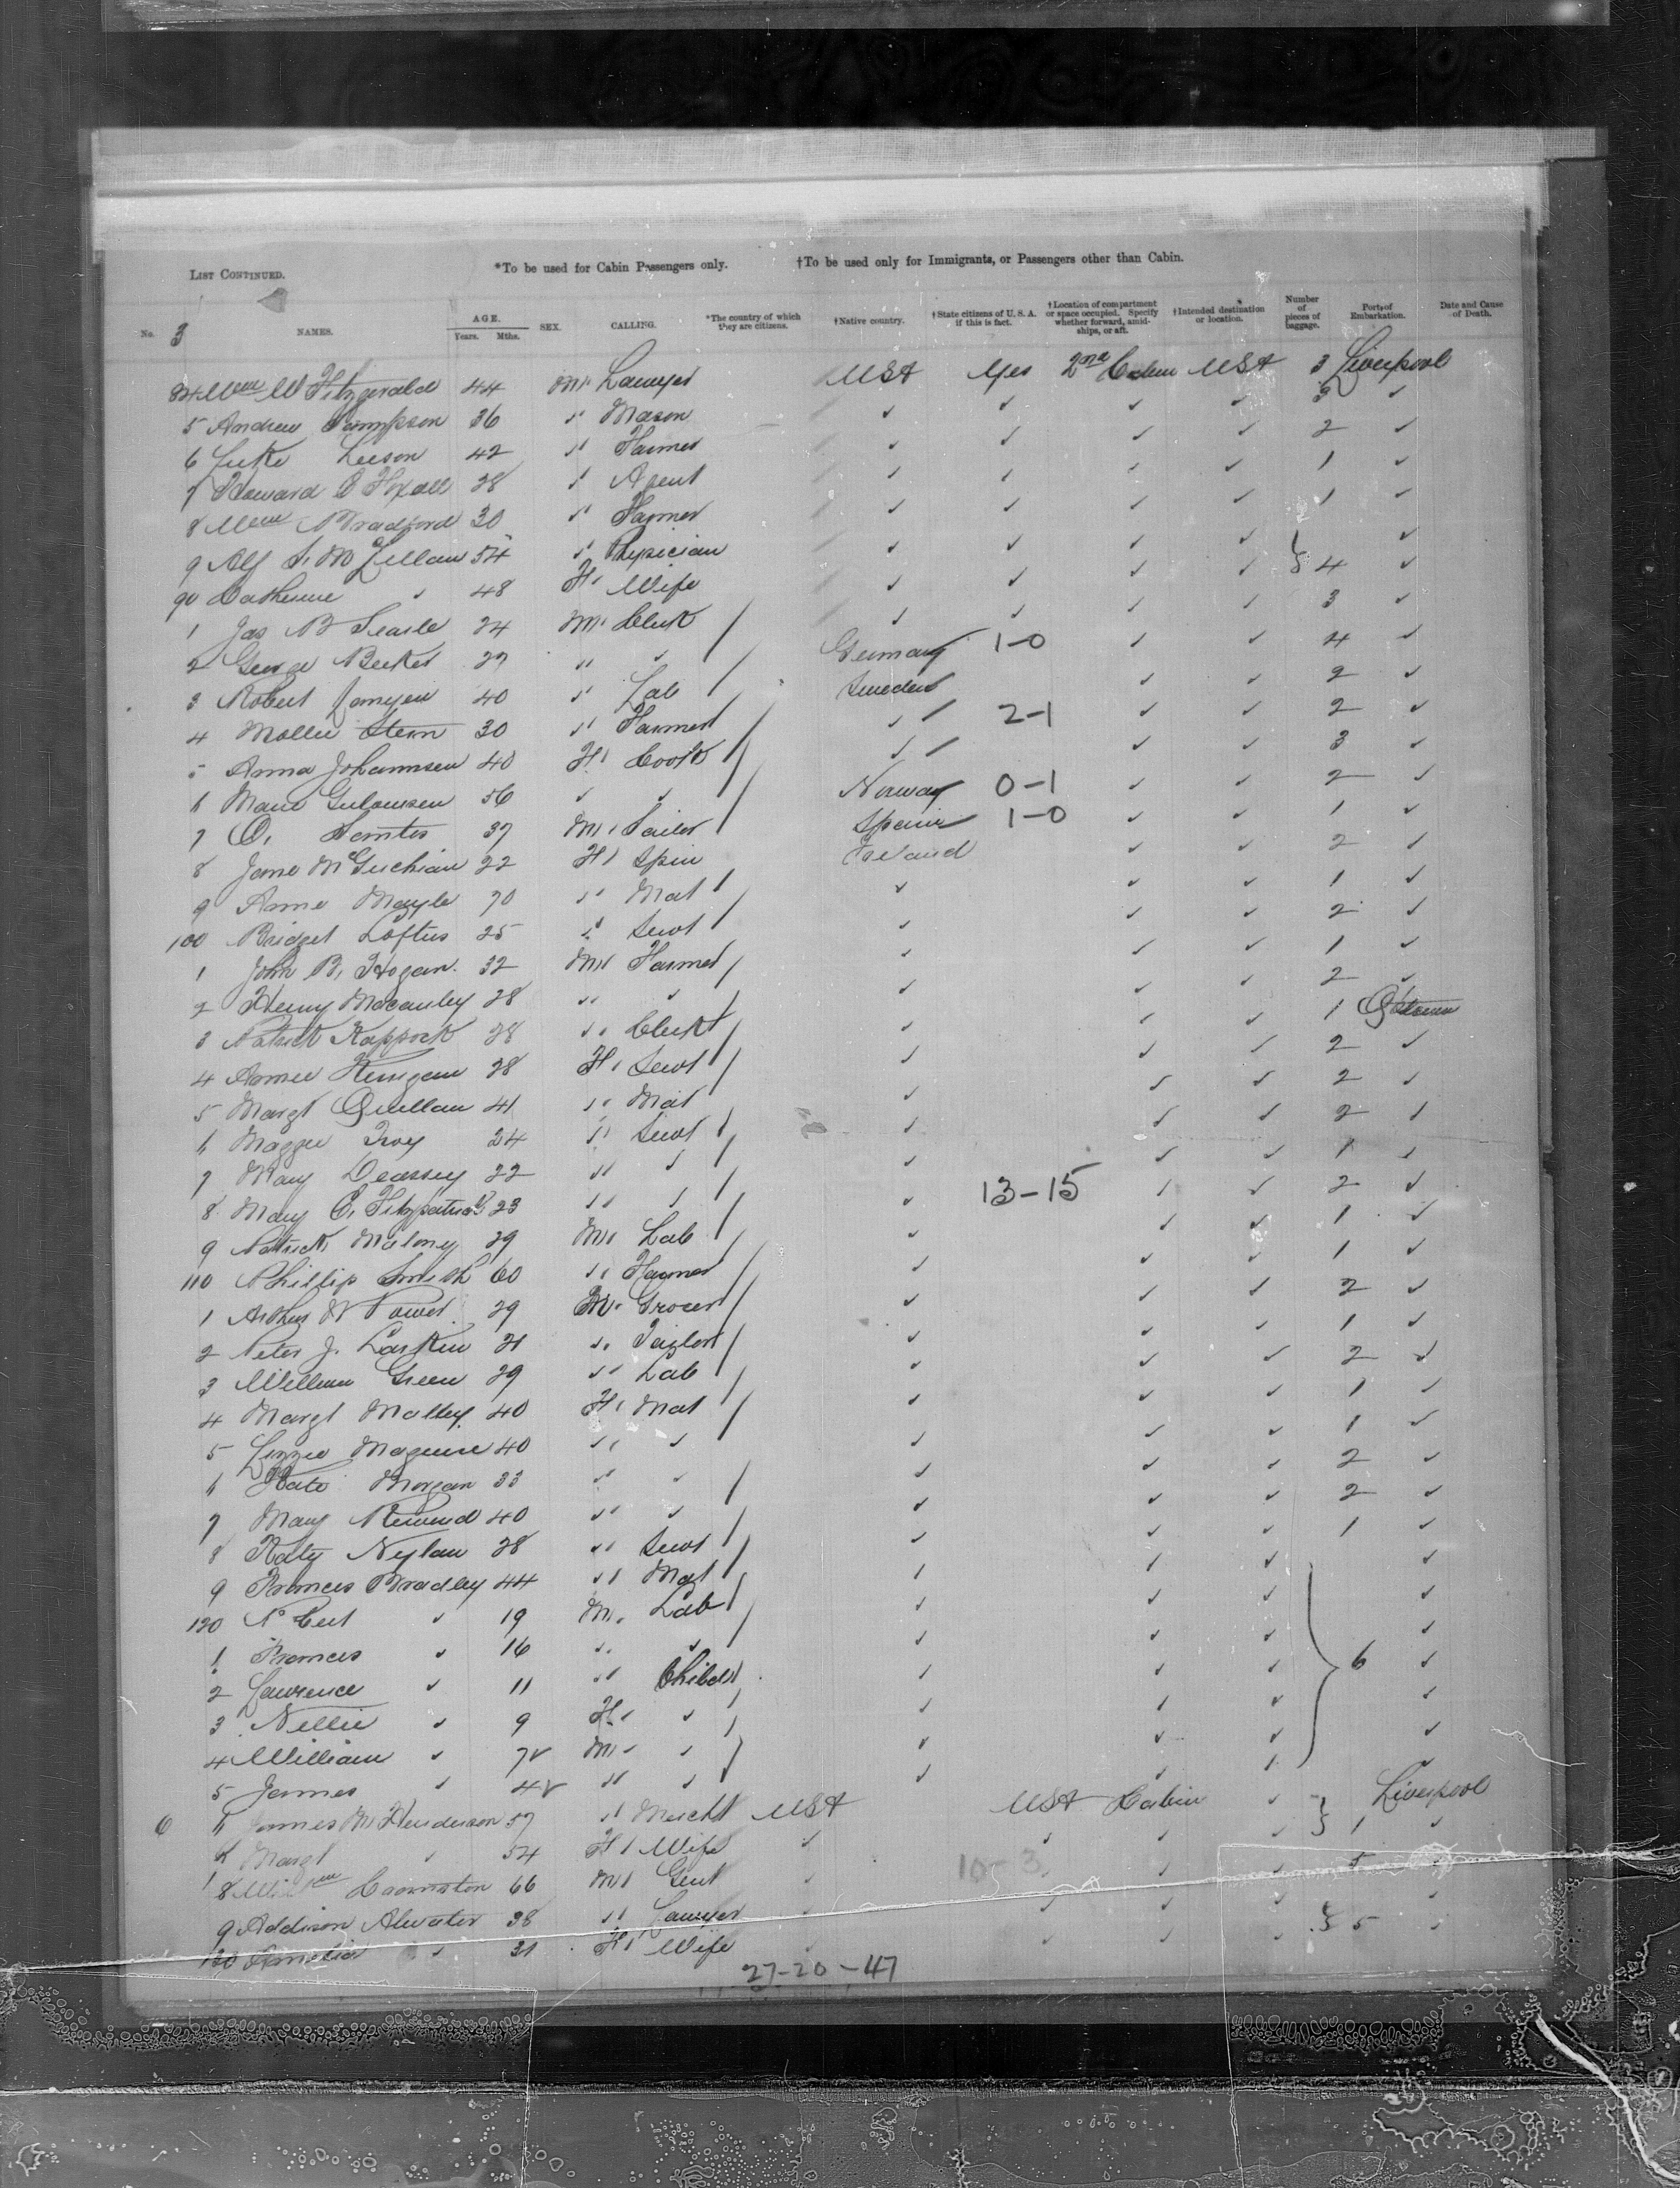 LIST CONTINUED. *To be used for Cabin Passengers only. †To be used only for Immigrants, or Passengers other than Cabin.
No. 3 NAMES. AGE. Years. Mths. SEX. CALLING. *The country of which they are citizens. †Native country. †State citizens of U. S. A. if this is fact. †Location of compartment or space occupied. Specify whether forward, amidships, or aft. †Intended destination or location. Number of pieces of baggage. Port of Embarkation. Date and Cause of Death.
84 Wm W Fitzgerald 44 M Lawyer USA Yes 2nd Cabin USA 3 Liverpool
5 Andrew 36 " Mason ✓ ✓ ✓ ✓ 3 ✓
6 Luke Leeson 42 " Farmer ✓ ✓ ✓ ✓ 2 ✓
7 Howard 28 " Agent ✓ ✓ ✓ ✓ 1 ✓
8 Wm Bradford 30 " Farmer ✓ ✓ ✓ ✓ 1 ✓
9 Alf 54 " Physician ✓ ✓ ✓ ✓ ✓
90 Catherine " 48 F Wife ✓ ✓ ✓ ✓ 4 ✓
1 Jas B Searle 24 M Clerk / ✓ ✓ ✓ ✓ 3 ✓
2 George Becker 27 " " / Germany 1-0 ✓ ✓ 4 ✓
3 Robert 40 " Lab / Sweden ✓ ✓ 2 ✓
4 Mollie Stern 30 " Farmer / ✓ 2-1 ✓ ✓ 2 ✓
5 Anna Johannsen 40 F Cook / ✓ ✓ ✓ 3 ✓
6 56 " " / Norway 0-1 ✓ ✓ 2 ✓
7 O. 37 M Sailor / Spain 1-0 ✓ ✓ 1 ✓
8 Jane 22 F Spin Ireland ✓ ✓ 2 ✓
9 Anne 70 " Mat / ✓ ✓ ✓ 1 ✓
100 Bridget Loftus 25 " Servt / ✓ ✓ ✓ 2 ✓
1 John B. Hogan 32 M Farmer / ✓ ✓ ✓ 1 ✓
2 Henry Macauley 28 " " / ✓ ✓ ✓ 2 ✓
3 Patrick 28 " Clerk / ✓ ✓ ✓ 1
4 Annie 28 F Servt / ✓ ✓ ✓ 2 ✓
5 Margt 41 " Mat / ✓ ✓ ✓ 2 ✓
6 Maggie Troy 24 " Servt / ✓ ✓ ✓ 2 ✓
7 Mary 22 " " / ✓ ✓ ✓ 1 ✓
8 Mary E. Fitzpatrick 23 " " / ✓ 13-15 ✓ ✓ 2 ✓
9 Patrick Maloney 29 M Lab / ✓ ✓ ✓ 1 ✓
110 Phillip Smith 60 " Farmer / ✓ ✓ ✓ 1 ✓
1 Arthur W Power 29 M Grocer / ✓ ✓ ✓ 2 ✓
2 Peter J. Larkin 21 " Tailor / ✓ ✓ ✓ 1 ✓
3 William Green 29 " Lab / ✓ ✓ ✓ 2 ✓
4 Margt Malley 40 F Mat / ✓ ✓ ✓ 1 ✓
5 Lizzie Maguire 40 " " ✓ ✓ ✓ 1 ✓
6 Kate Morgan 33 " " / ✓ ✓ ✓ 2 ✓
7 Mary 40 " " ✓ ✓ ✓ 2 ✓
8 Katy Nylan 28 " Servt / ✓ ✓ ✓ 1 ✓
9 Frances Bradley 44 " Mat / ✓ ✓ ✓ ✓
120 " 19 M Lab / ✓ ✓ ✓ ✓
1 Frances " 16 " " / ✓ ✓ ✓ ✓
2 Lawrence " 11 " Child / ✓ ✓ ✓ 6 ✓
3 Nellie " 9 F " / ✓ ✓ ✓ ✓
4 William " 7 M " / ✓ ✓ ✓ ✓
5 James " 4 " " / ✓ ✓ ✓ ✓
6 James M Henderson 57 " Mercht USA USA Cabin ✓ Liverpool
Margt " 54 F Wife ✓ ✓ ✓ ✓ 1 ✓
8 66 M Gent ✓ 10 3 ✓ ✓
9 Addison Atwater 38 " Lawyer ✓ ✓ ✓ ✓ ✓
130 Amelia " 31 F Wife ✓ ✓ ✓ ✓ 5 ✓
27-20-47